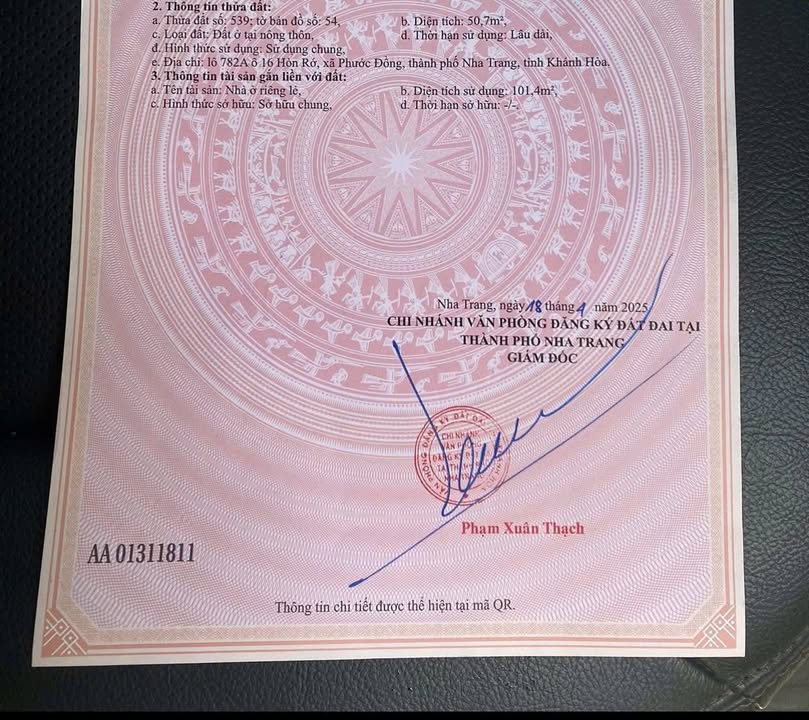 2. Thông tin thửa đất:
a. Thửa đất số: 539; tờ bản đồ số: 54, b. Diện tích: 50,7m²,
c. Loại đất: Đất ở tại nông thôn, d. Thời hạn sử dụng: Lâu dài,
đ. Hình thức sử dụng: Sử dụng chung,
e. Địa chỉ: lô 782A ô 16 Hòn Rớ, xã Phước Đồng, thành phố Nha Trang, tỉnh Khánh Hòa.
3. Thông tin tài sản gắn liền với đất:
a. Tên tài sản: Nhà ở riêng lẻ, b. Diện tích sử dụng: 101,4m²,
c. Hình thức sở hữu: Sở hữu chung, d. Thời hạn sở hữu: -/-.
Nha Trang, ngày 18 tháng 4 năm 2025
CHI NHÁNH VĂN PHÒNG ĐĂNG KÝ ĐẤT ĐAI TẠI
THÀNH PHỐ NHA TRANG
GIÁM ĐỐC
VĂN PHÒNG ĐĂNG KÝ ĐẤT ĐAI
CHI NHÁNH
VĂN PHÒNG
ĐĂNG KÝ
NHA TRANG
Phạm Xuân Thạch
AA 01311811
Thông tin chi tiết được thể hiện tại mã QR.